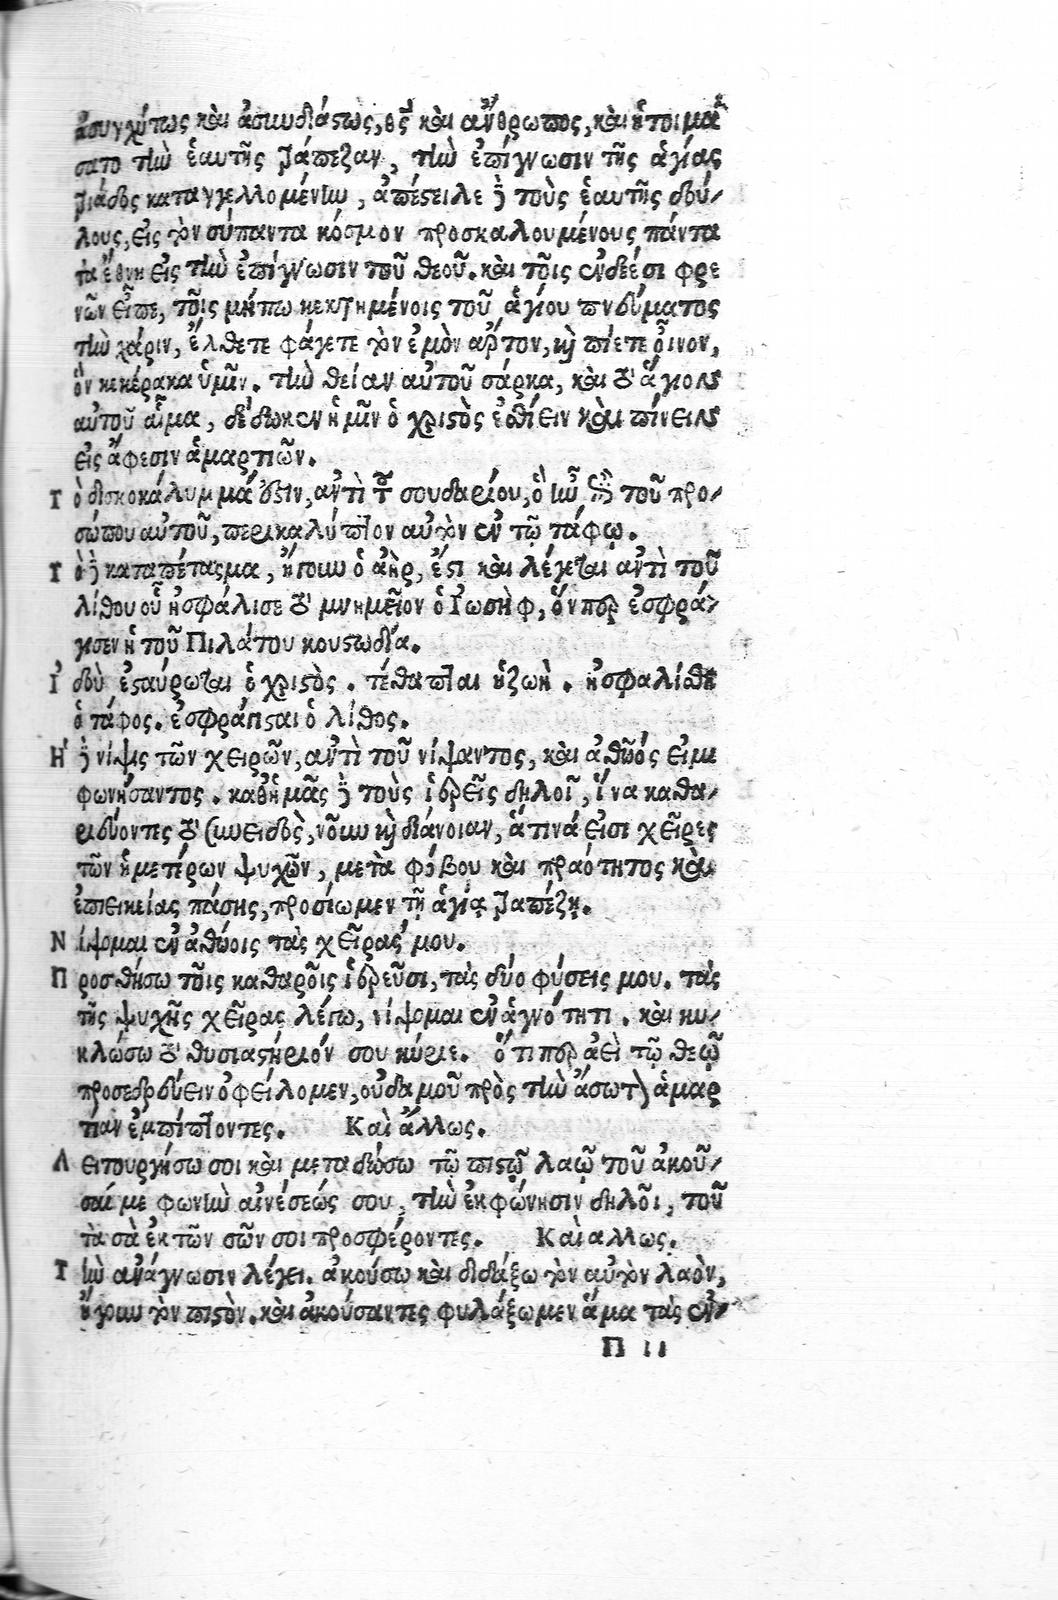 ἀσυγχύτως καὶ ἀσκυδιάστως, θς καὶ ἄνθρωπος, καὶ ἡτοιμά
σατο τὴν ἑαυτῆς τράπεζαν, τὴν ἐπίγνωσιν τῆς ἁγίας
τριάδος καταγγελλομένην, ἀπέστειλε δὲ τοὺς ἑαυτῆς δού-
λους, εἰς τὸν σύπαντα κόσμον προσκαλουμένους πάντα
τὰ ἔθνη εἰς τὴν ἐπίγνωσιν τοῦ θεοῦ. καὶ τοῖς ἐνδεέσι φρε
νῶν εἶπε, τοῖς μήπω κεκτημένοις τοῦ ἁγίου πνεύματος
τὴν χάριν, ἔλθετε φάγετε τὸν ἐμὸν ἄρτον, καὶ πίετε οἶνον,
ὃν κεκέρακα ὑμῖν. τὴν θείαν αὐτοῦ σάρκα, καὶ τὸ ἅγιον
αὐτοῦ αἷμα, δέδωκεν ἡμῖν ὁ χριστὸς ἐσθίειν καὶ πίνειν
εἰς ἄφεσιν ἁμαρτιῶν.
Τὸ δισκοκάλυμμά ἐστιν, ἀντὶ τοῦ σουδαρίου, ὃ ἦν ἐπὶ τοῦ προ-
σώπου αὐτοῦ, περικαλύπτον αὐτὸν ἐν τῷ τάφῳ.
Τὸ δὲ καταπέτασμα, ἤγουν ὁ ἀὴρ, ἔστι καὶ λέγεται ἀντὶ τοῦ
λίθου οὗ ἠσφάλισε τὸ μνημεῖον ὁ Ἰωσὴφ, ὅνπερ ἐσφρά-
γισεν ἡ τοῦ Πιλάτου κουστωδία.
Ἰδοὺ ἐσταύρωται ὁ χριστὸς. τέθαπται ἡ ζωὴ. ἠσφαλίσθη
ὁ τάφος. ἐσφράγισται ὁ λίθος.
Ἡ δὲ νίψις τῶν χειρῶν, ἀντὶ τοῦ νίψαντος, καὶ ἀθῶός εἰμι
φωνήσαντος. καθ' ἡμᾶς δὲ τοὺς ἱερεῖς δηλοῖ, ἵνα καθα-
ριεύοντες τὸ συνειδὸς, νοῦν καὶ διάνοιαν, ἅτινά εἰσι χεῖρες
τῶν ἡμετέρων ψυχῶν, μετὰ φόβου καὶ πραότητος καὶ
ἐπιεικείας πάσης, προσίωμεν τῇ ἁγίᾳ τραπέζῃ.
Νίψομαι ἐν ἀθώοις τὰς χεῖρας μου.
Προσθήσω τοῖς καθαροῖς ἱερεῦσι, τὰς δύο φύσεις μου. τὰς
τῆς ψυχῆς χεῖρας λέγω, νίψομαι ἐν ἁγνότητι. καὶ κυ-
κλώσω τὸ θυσιαστήριόν σου κύριε. ὅτι περ ἀεὶ τῷ θεῷ
προσεδρεύειν ὀφείλομεν, οὐδαμοῦ πρὸς τὴν ἄσωτον ἁμαρ
τίαν ἐμπίπτοντες. Καὶ ἄλλως.
Λειτουργήσω σοι καὶ μεταδώσω τῷ πιστῷ λαῷ τοῦ ἀκοῦ-
σαί με φωνὴν αἰνέσεώς σου, τὴν ἐκφώνησιν δηλοῖ, τοῦ
τὰ σὰ ἐκ τῶν σῶν σοι προσφέροντες. Καὶ αλλως.
Τὴν ἀνάγνωσιν λέγει. ἀκούσω καὶ διδάξω τὸν αὐτὸν λαὸν,
ἤγουν τὸν πιστὸν. καὶ ἀκούσαντες φυλάξωμεν ἅμα τὰς ἐν-
Π ii